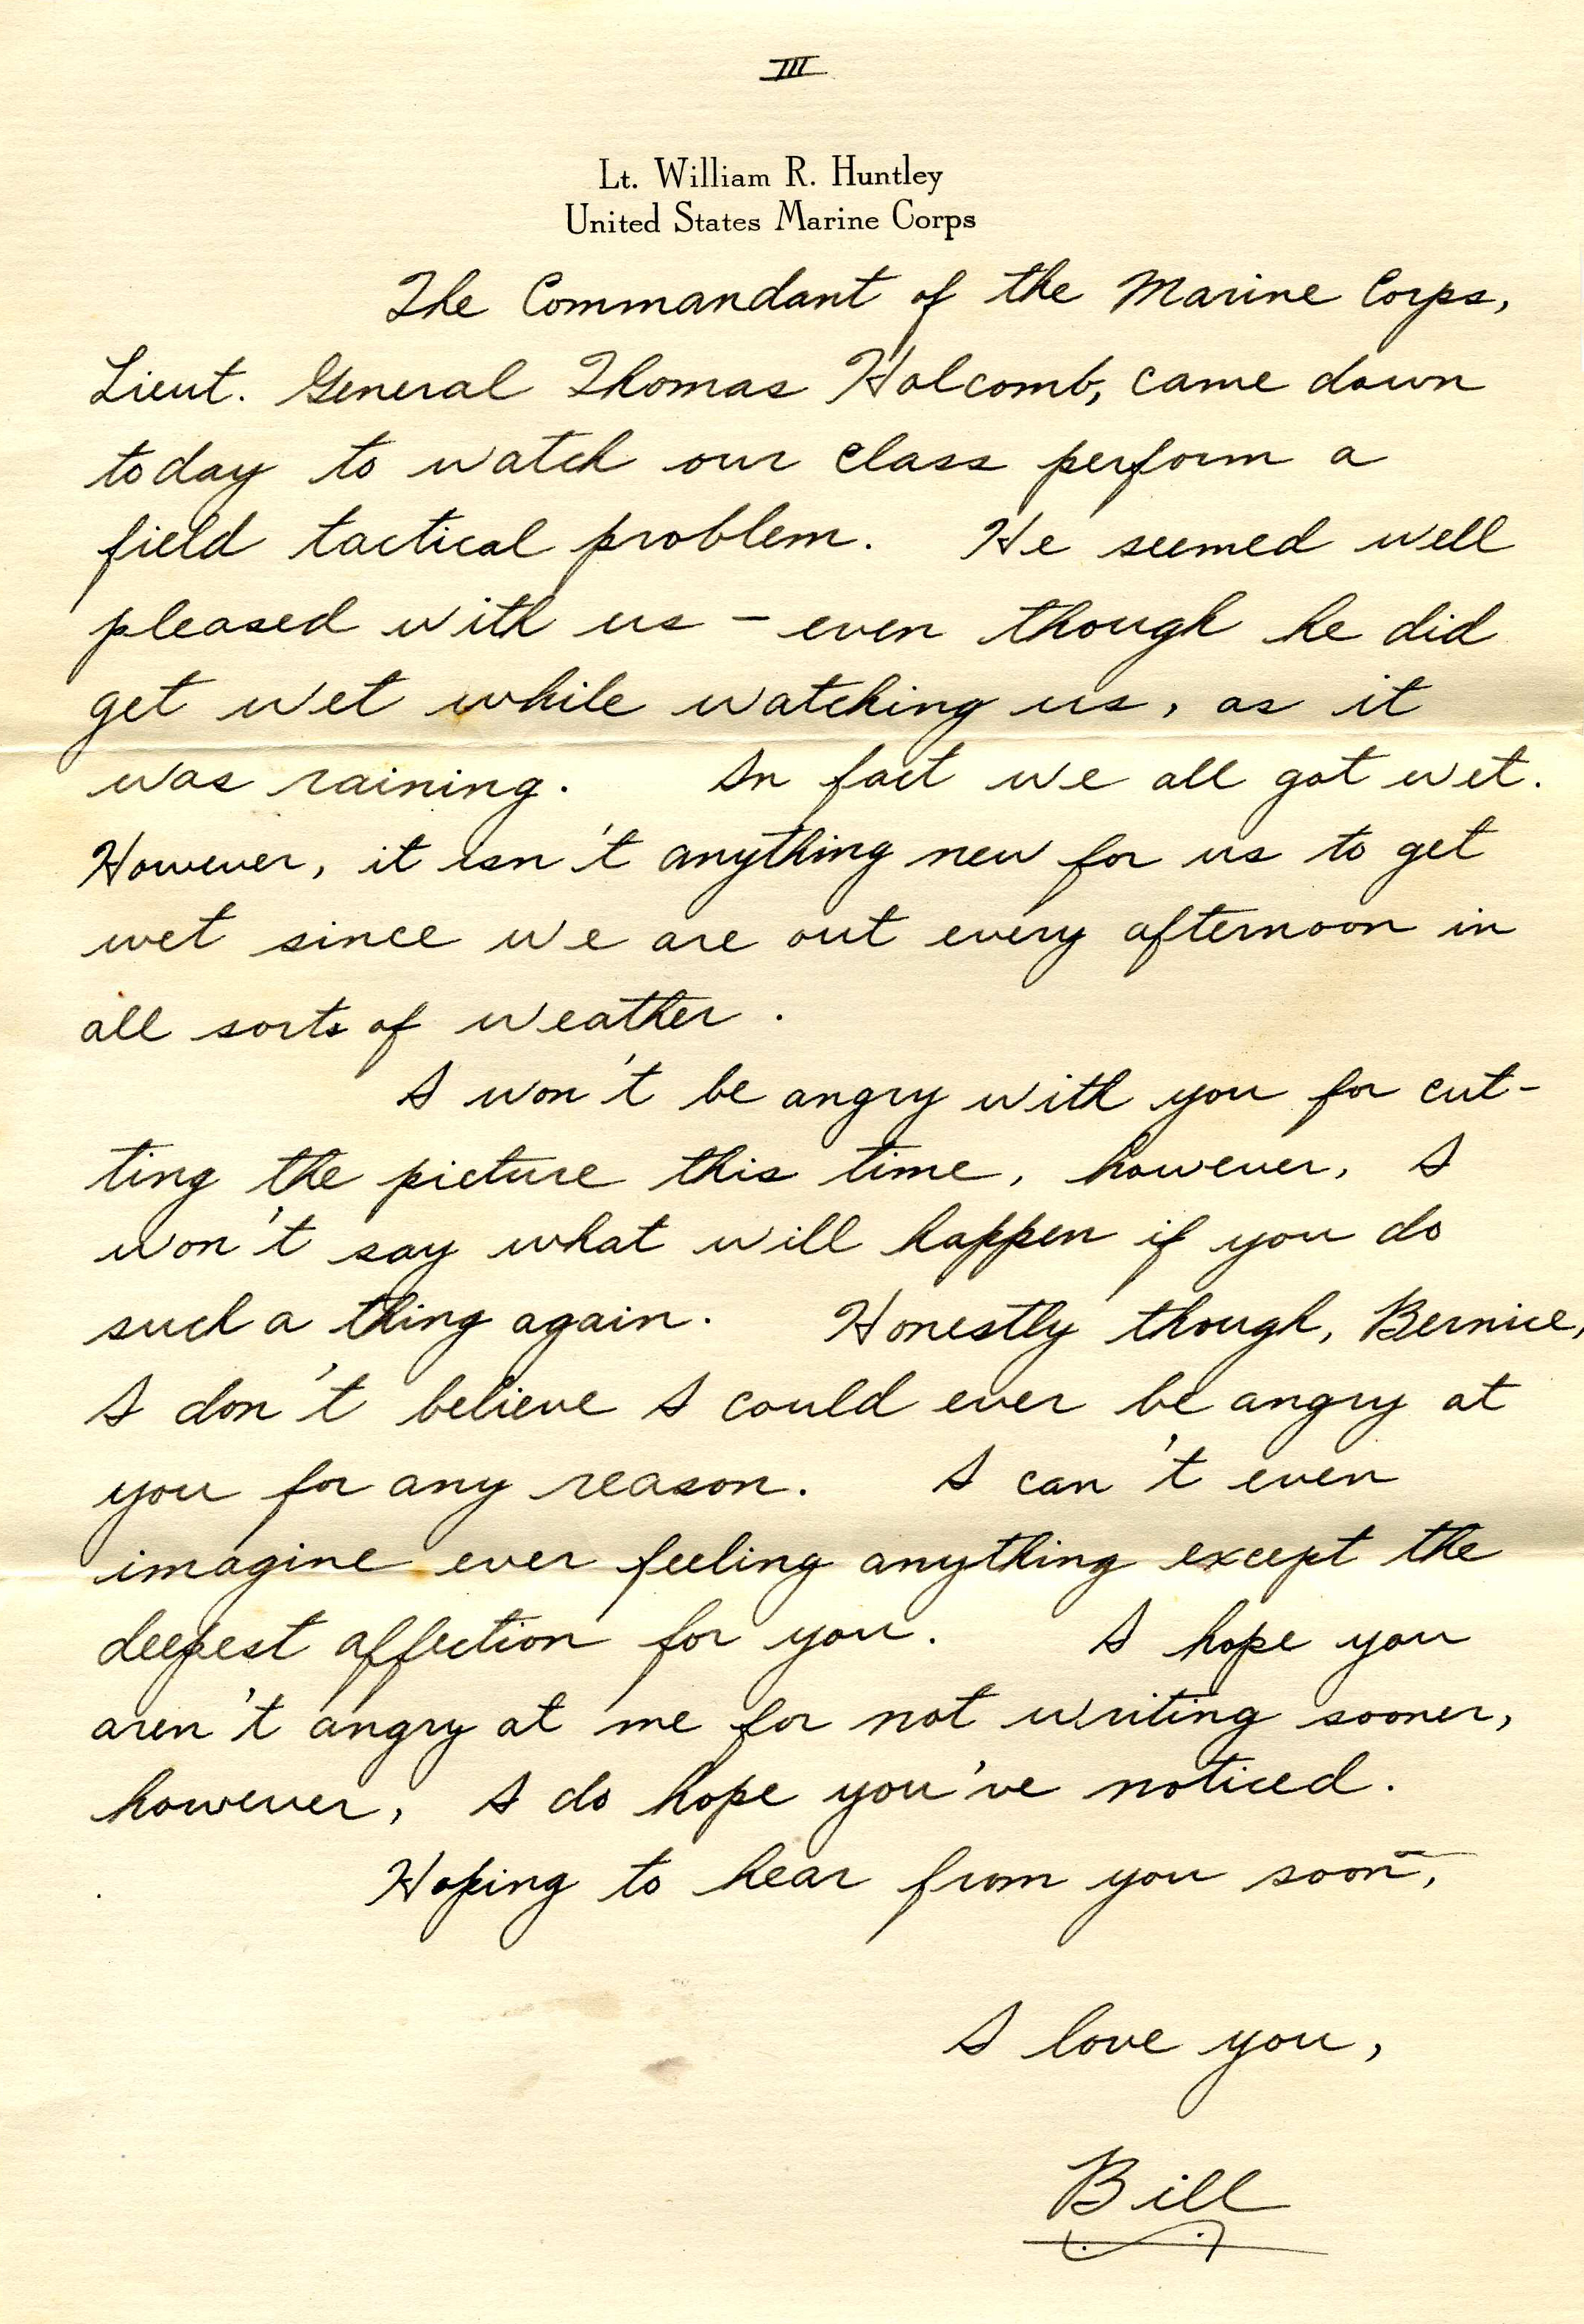 III
Lt. William R. Huntley
United States Marine Corps
The Commandant of the Marine Corps,
Lieut. General Thomas Holcomb, came down
today to watch our class perform a
field tactical problem. He seemed well
pleased with us – even though he did
get wet while watching us, as it
was raining. In fact we all got wet.
However, it isn't anything new for us to get
wet since we are out every afternoon in
all sorts of weather.
I won't be angry with you for cut-
ting the picture this time, however, I
won't say what will happen if you do
such a thing again. Honestly though, Bernice,
I don't believe I could ever be angry at
you for any reason. I can't even
imagine ever feeling anything except the
deepest affection for you. I hope you
aren't angry at me for not writing sooner,
however, I do hope you've noticed.
Hoping to hear from you soon,
I love you,
Bill